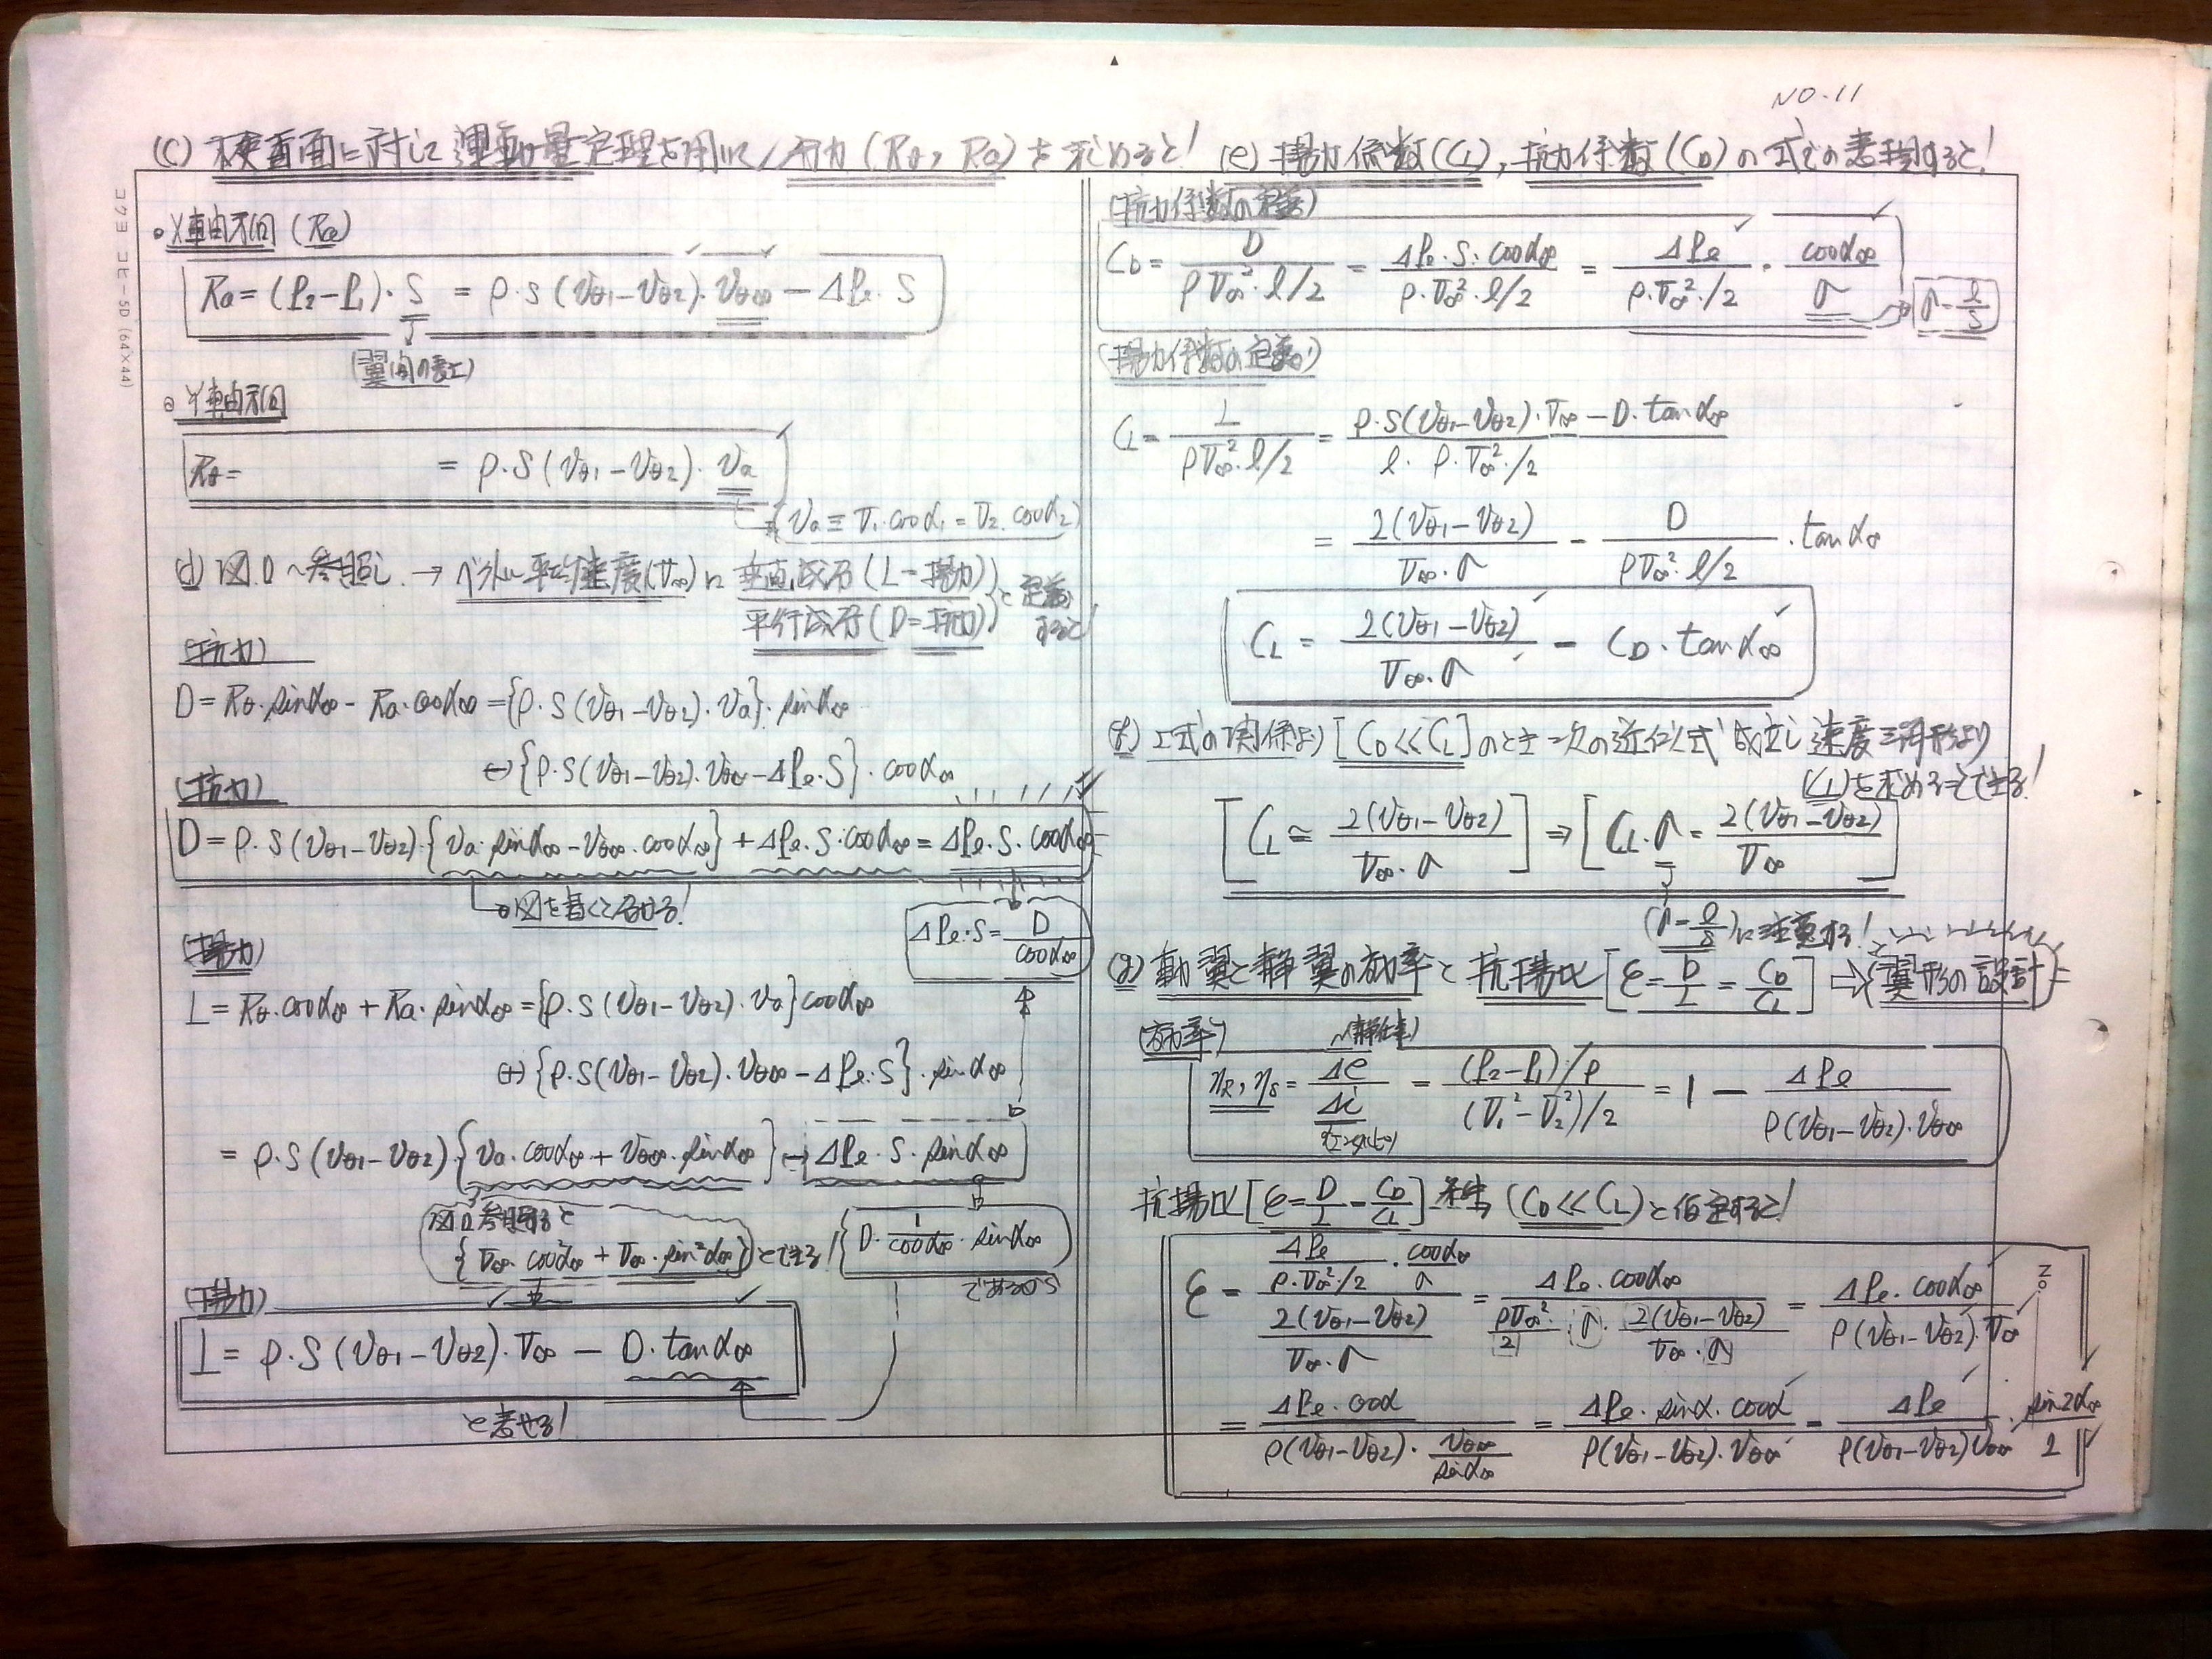 NO.11
(C) 検査面に対して運動量定理を用いて、分力(Rθ, Ra)を求めると!
・X軸方向 (Ra)
Ra = (P2-P1)・S = ρ・S(Vθ1-Vθ2)・Vθ∞ - ΔPe・S
(翼間の長さ)
・Y軸方向
Rθ = = ρ・S(Vθ1-Vθ2)・Va
(Va ≡ V1・cosα1 = V2・cosα2)
(d) 図.D へ参照し → ベクトル平均速度(V∞)に 垂直成分(L=揚力) 平行成分(D=抗力) と定義すると!
(抗力)
D = Rθ・sinα∞ - Ra・cosα∞ = {ρ・S(Vθ1-Vθ2)・Va}・sinα∞
(-) {ρ・S(Vθ1-Vθ2)・Vθ∞ - ΔPe・S}・cosα∞
(抗力)
D = ρ・S(Vθ1-Vθ2)・{Va・sinα∞ - Vθ∞・cosα∞} + ΔPe・S・cosα∞ = ΔPe・S・cosα∞
ΔPe・S = D/cosα∞
(揚力)
L = Rθ・cosα∞ + Ra・sinα∞ = {ρ・S(Vθ1-Vθ2)・Va}cosα∞
(+) {ρ・S(Vθ1-Vθ2)・Vθ∞ - ΔPe・S}・sinα∞
= ρ・S(Vθ1-Vθ2)・{Va・cosα∞ + Vθ∞・sinα∞} (-) ΔPe・S・sinα∞
図D参照すると
{V∞・cos²α∞ + V∞・sin²α∞} とできる!
{D・1/cosα∞・sinα∞
であるから
(揚力)
L = ρ・S(Vθ1-Vθ2)・V∞ - D・tanα∞
と表せる!
(e) 揚力係数(CL), 抗力係数(CD)の式での表現すると!
(抗力係数の定義)
CD = D/(ρV∞²・l/2) = ΔPe・S・cosα∞/(ρ・V∞²・l/2) = ΔPe/(ρ・V∞²/2)・cosα∞/σ
σ = l/S
(揚力係数の定義)
CL = L/(ρV∞²・l/2) = (ρ・S(Vθ1-Vθ2)・V∞ - D・tanα∞)/(l・ρ・V∞²/2)
= 2(Vθ1-Vθ2)/(V∞・σ) - D/(ρV∞²・l/2)・tanα∞
CL = 2(Vθ1-Vθ2)/(V∞・σ) - CD・tanα∞
(f) 上式の関係より [CD≪CL] のとき 次の近似式成立し 速度三角形より
(CL)を求めることできる!
[CL ≃ 2(Vθ1-Vθ2)/(V∞・σ)] ⇒ [CL・σ = 2(Vθ1-Vθ2)/V∞]
(σ = l/S)に注意する!
(g) 動翼と静翼の効率と抗揚比 [ε = D/L = CD/CL] ⇒ (翼形の設計)
(効率)
ηR, ηS = Δe/Δi = (P2-P1)/ρ/(V1²-V2²)/2 = 1 - ΔPe/(ρ(Vθ1-Vθ2)・Vθ∞)
抗揚比 [ε = D/L = CD/CL] (CD≪CL)と仮定すると!
ε = (ΔPe/(ρ・V∞²/2)・cosα∞/σ)/(2(Vθ1-Vθ2)/(V∞・σ)) = ΔPe・cosα∞/(ρV∞²/2・σ・2(Vθ1-Vθ2)/(V∞・σ)) = ΔPe・cosα∞/(ρ(Vθ1-Vθ2)・V∞)
= ΔPe・cosα/(ρ(Vθ1-Vθ2)・Vθ∞/sinα∞) = ΔPe・sinα・cosα/(ρ(Vθ1-Vθ2)・Vθ∞) = ΔPe/(ρ(Vθ1-Vθ2)Vθ∞)・sin2α∞/2
コクヨ コヒ-5D (64×44)
No.